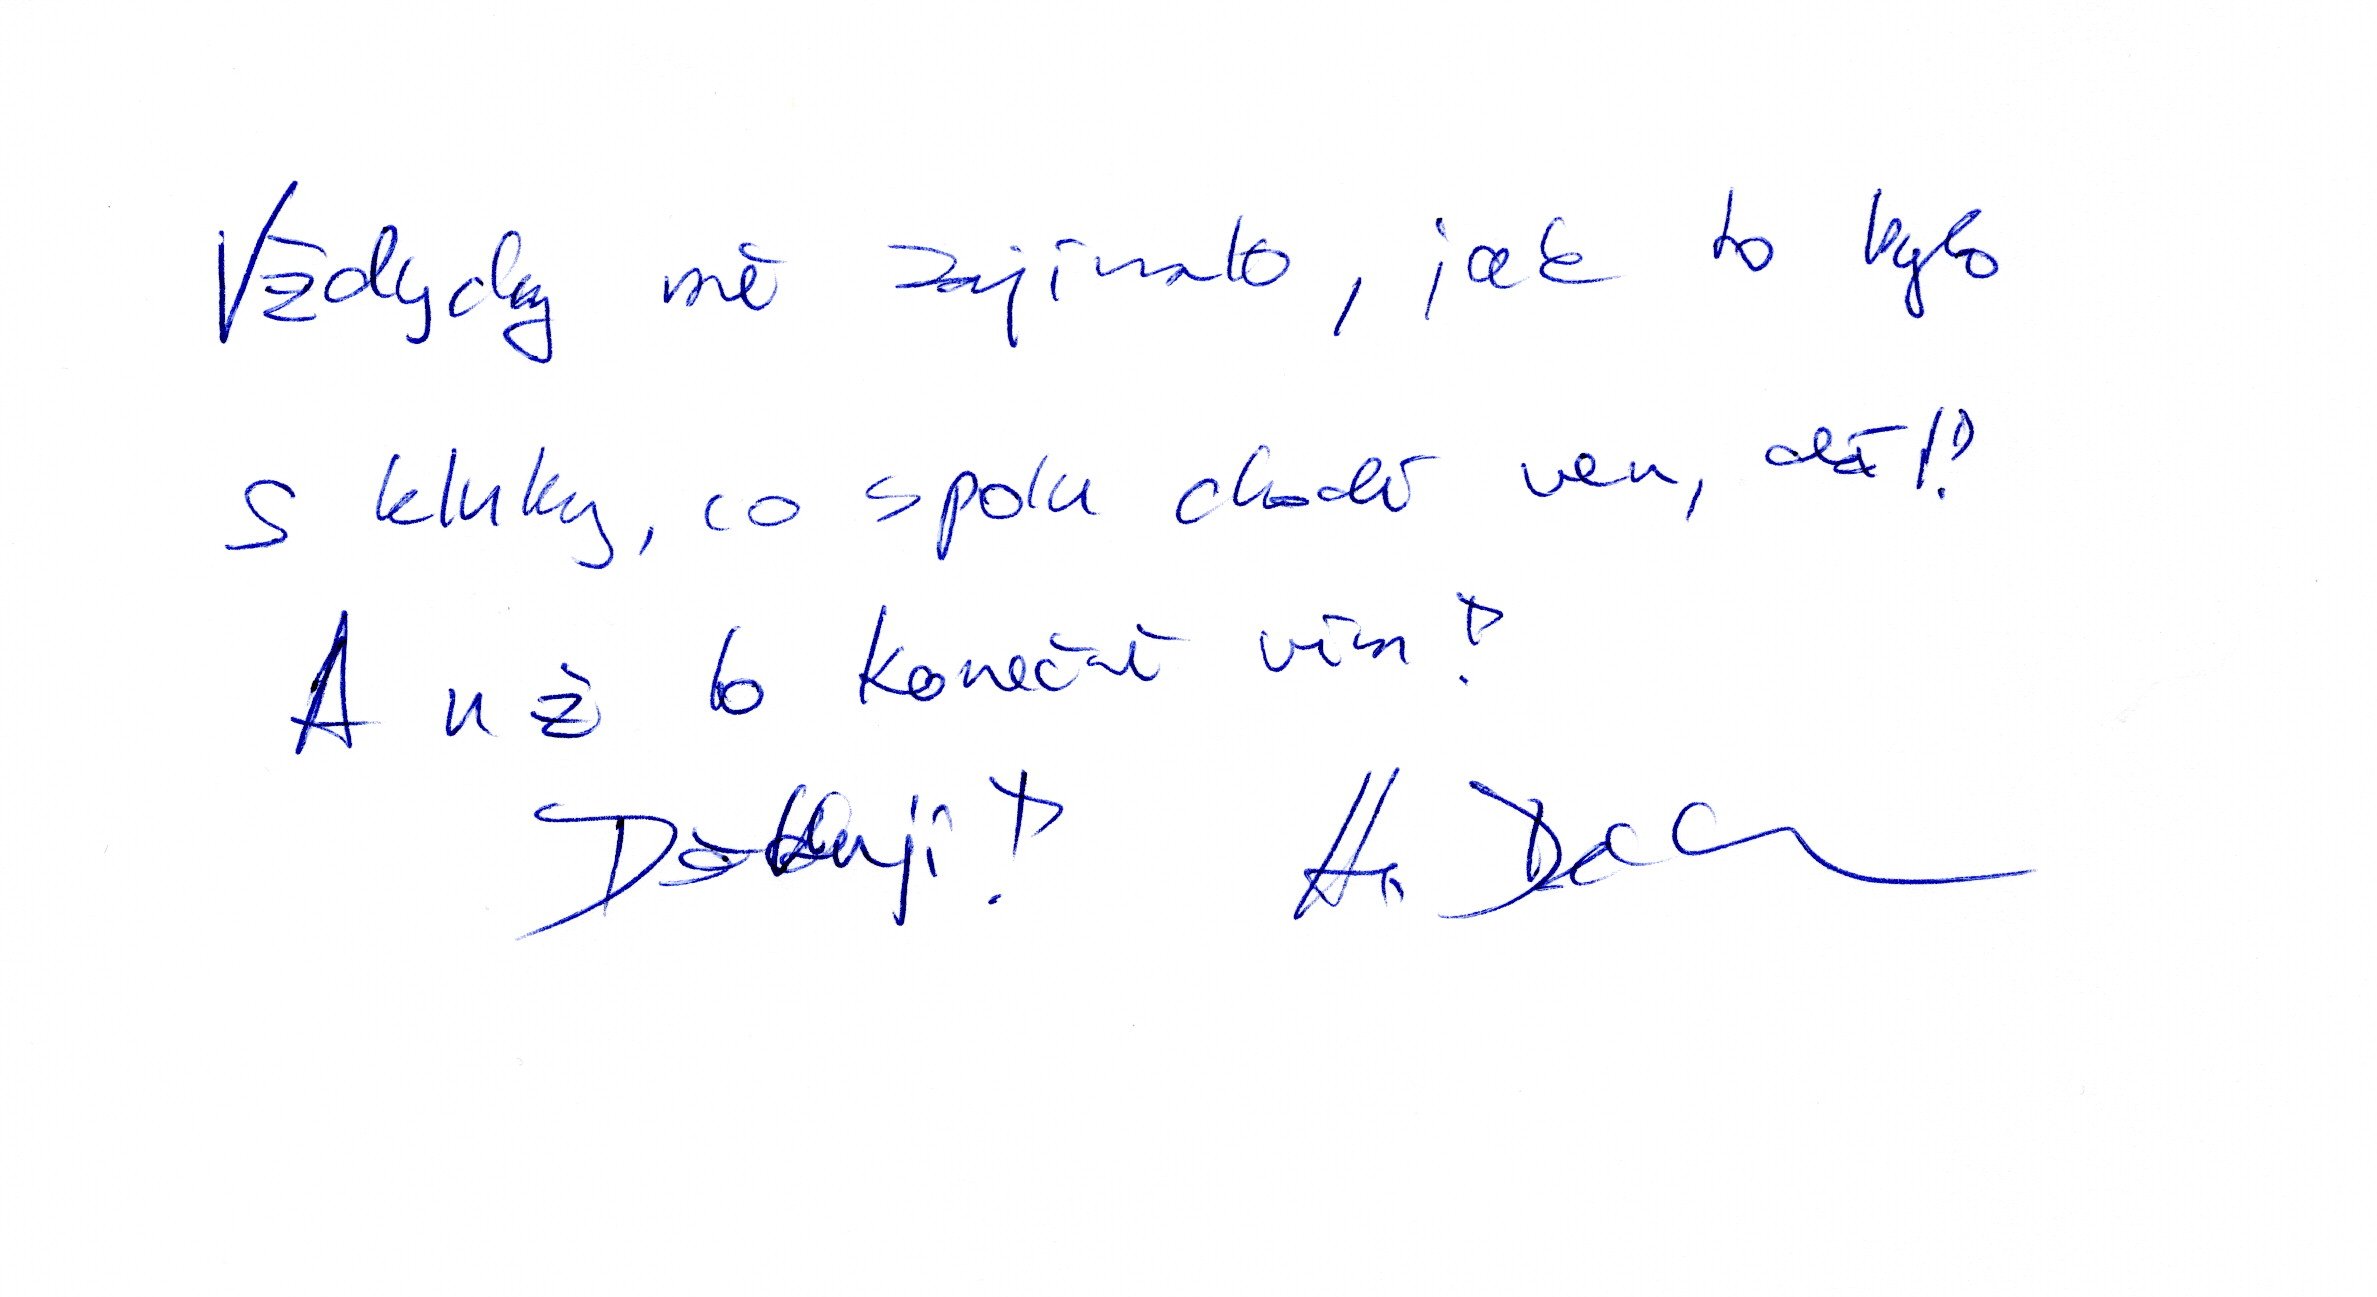 Vždycky mě zajímalo, jak to bylo
s kluky, co spolu chodí ven, dál!?
A už to konečně vím!
Děkuji!